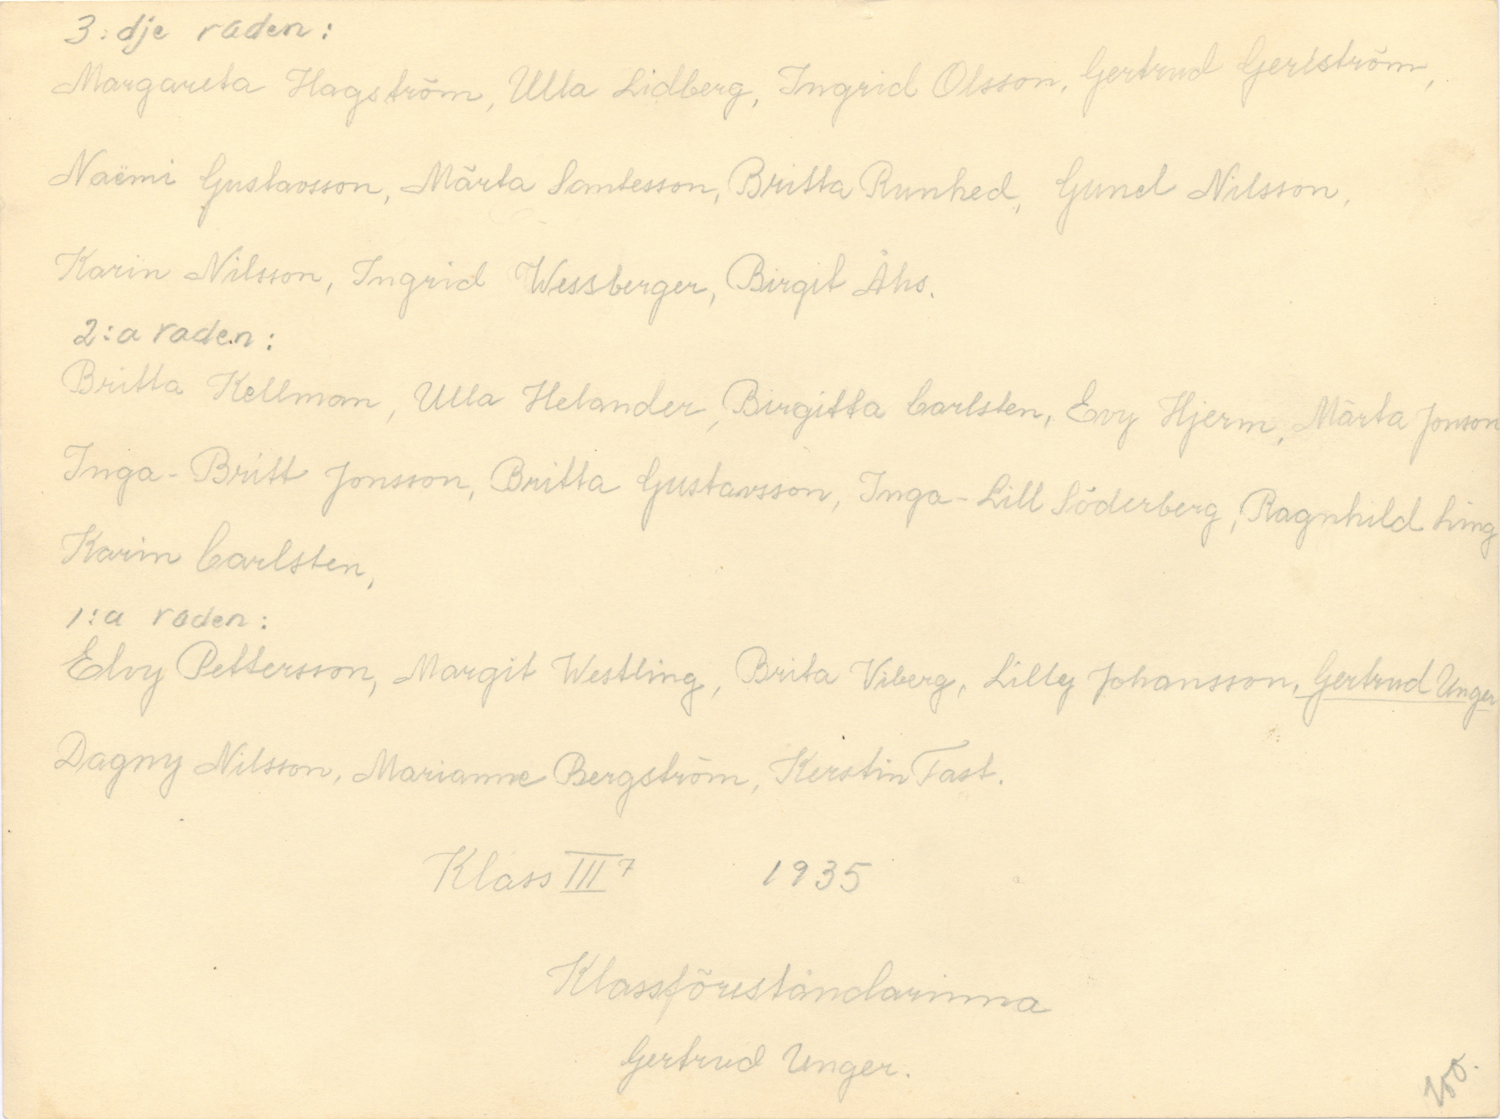 3:dje raden:
Margareta Hagström, Ulla Lidberg, Ingrid Olsson, Gertrud Gerlström,
Naëmi Gustavsson, Märta Santesson, Britta Runhed, Gunel Nilsson,
Karin Nilsson, Ingrid Wessberger, Birgit Åhs.
2:a raden:
Britta Kellman, Ulla Helander, Birgitta Carlsten, Evy Hjerm, Märta Jonson
Inga-Britt Jonsson, Britta Gustavsson, Inga-Lill Söderberg, Ragnhild Ling
Karin Carlsten,
1:a raden:
Elvy Pettersson, Margit Westling, Brita Viberg, Lilly Johansson, Gertrud Unger
Dagny Nilsson, Marianne Bergström, Kerstin Fast.
Klass III 7 1935
Klassföreståndarinna
Gertrud Unger.